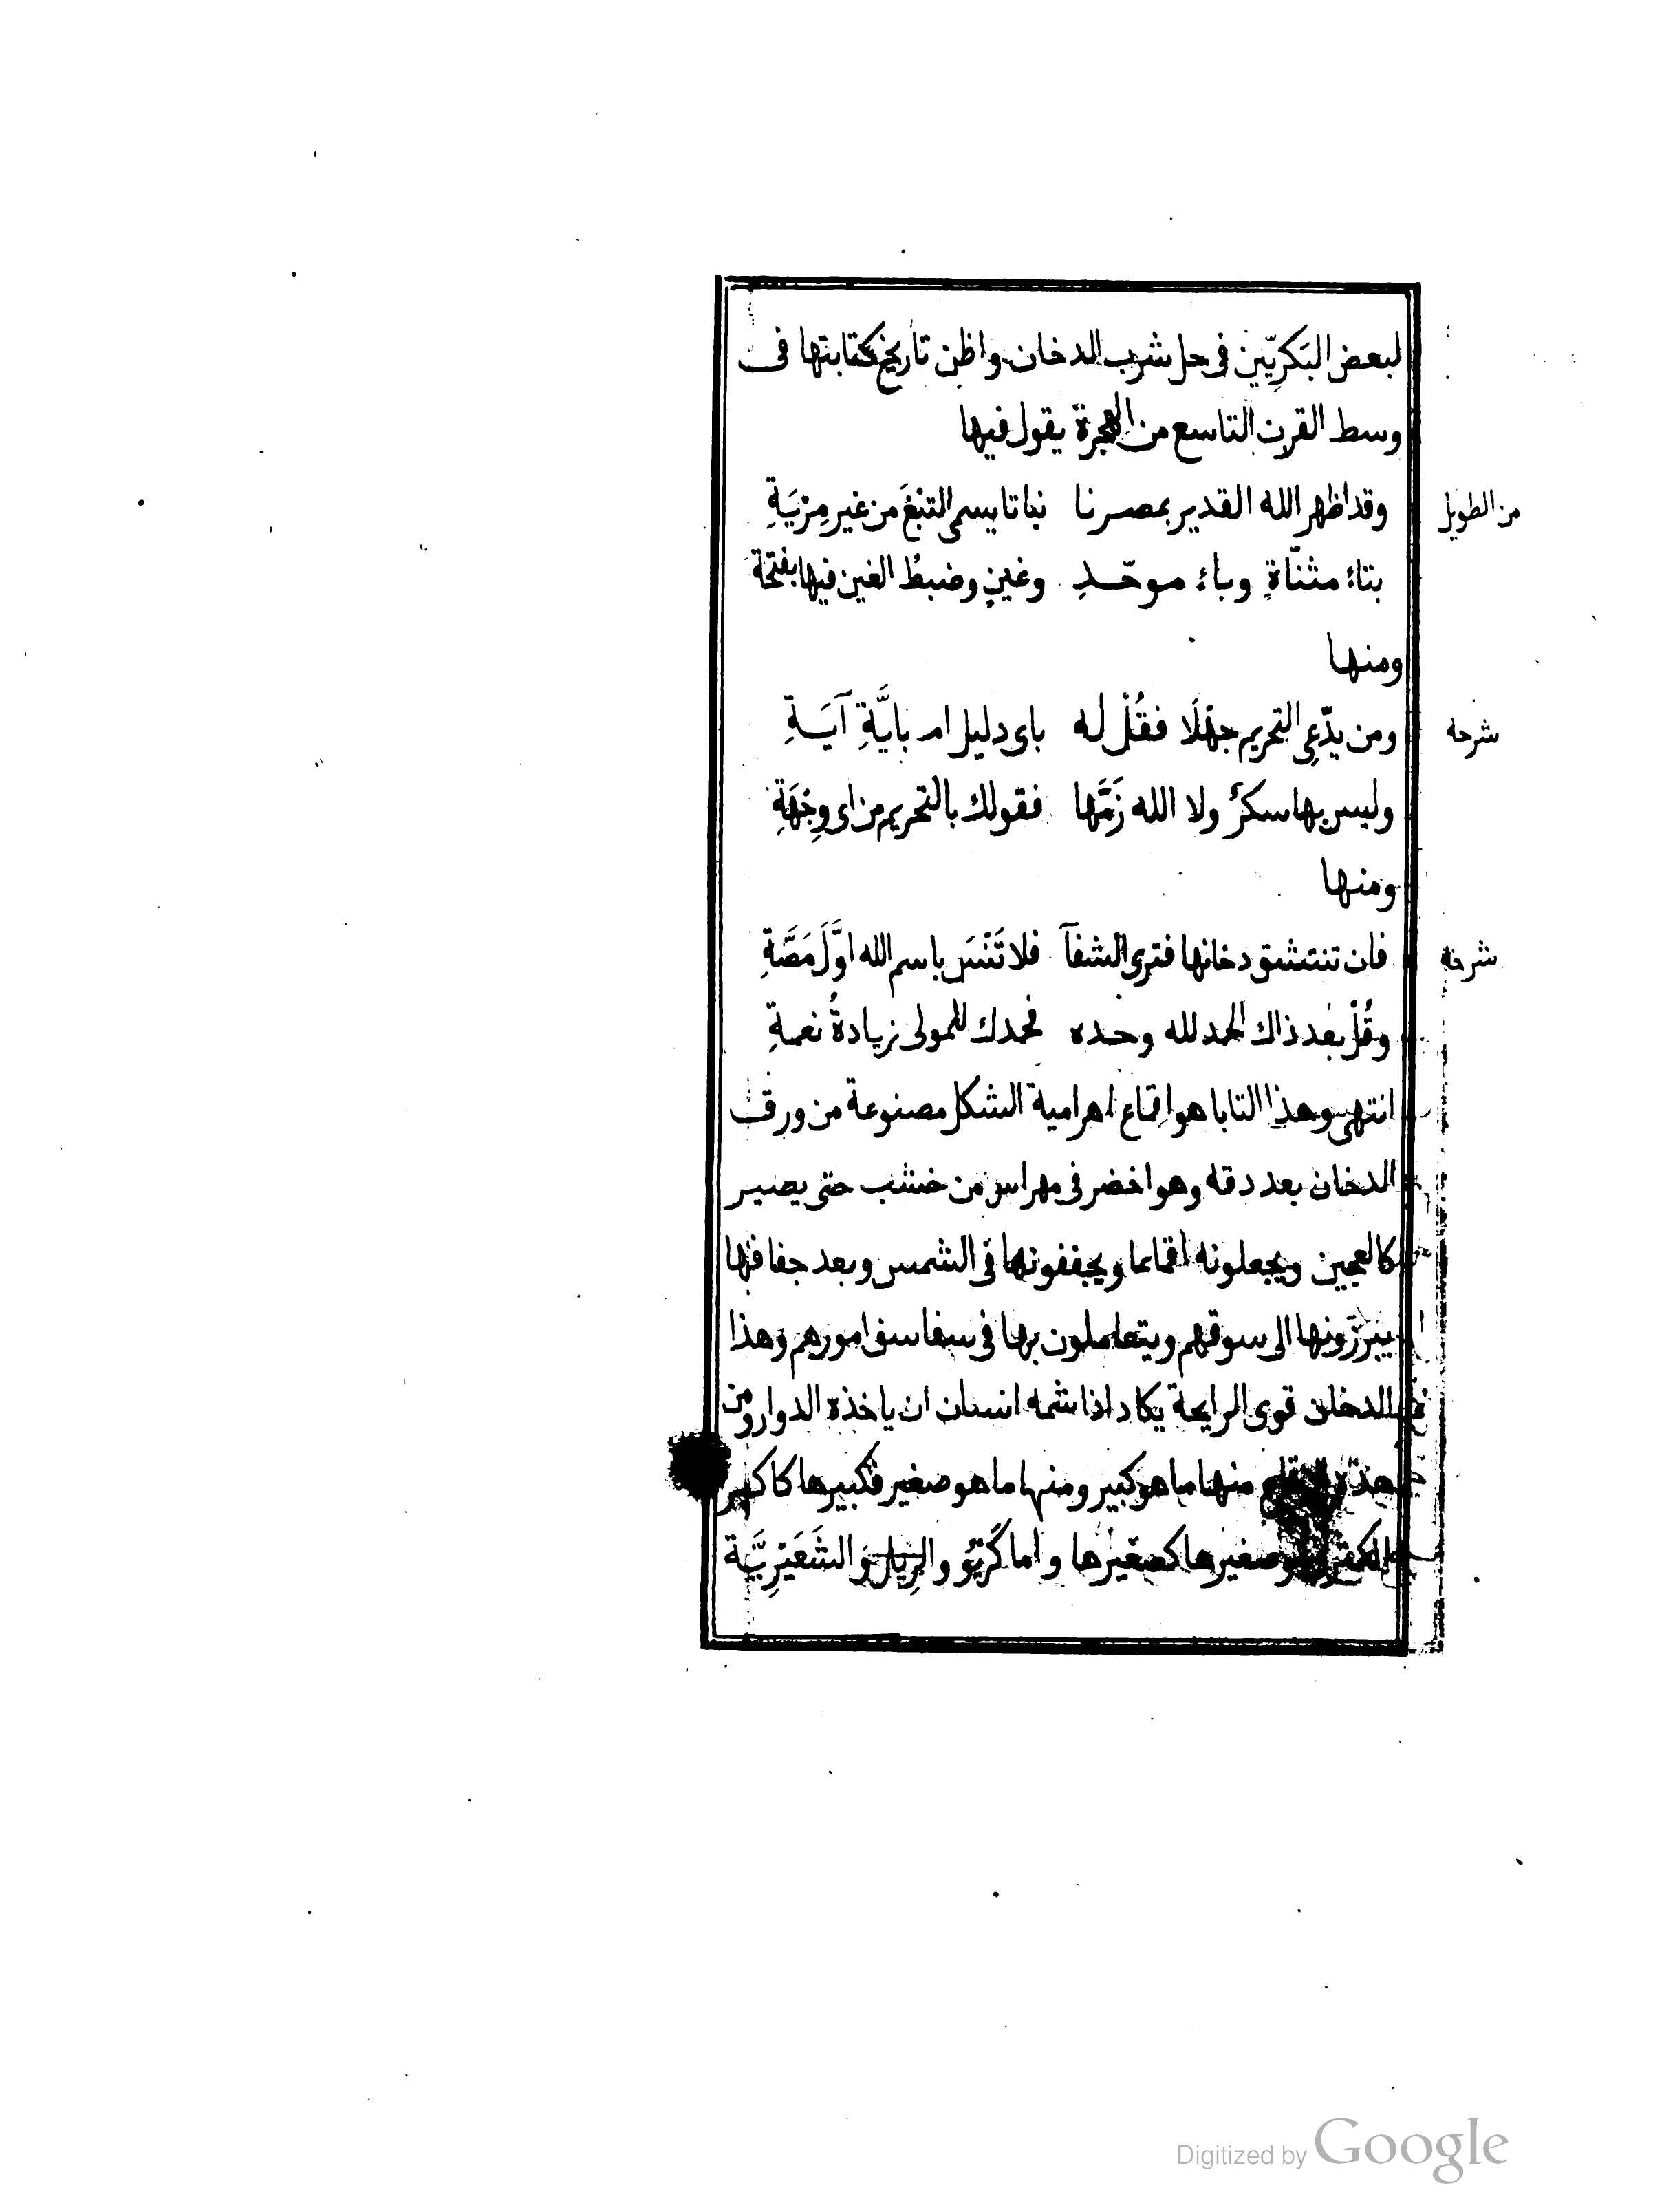 لبعض البَكرِيّين فى حل شرب الدخان واظن تاريخ كتابتها فى
وسط القرن التاسع من الهجرة يقول فيها
من الطويل
وقد اظهر الله القدير بمصرنا نباتا يسمى التنبغَ من غير مِزْيَةِ
بتاء مثنّاةٍ وباء موحّد وغينٍ وضبطُ الغين فيها بفتحة
ومنها
شرحه
ومن يدّعِى التحريم جهْلًا فقُلْ له باى دليل ام بايَّةِ آيَةِ
وليس بها سكرٌ ولا الله ذَمَّها فقولك بالتحريم من اى وِجْهَةِ
ومنها
شرحه
فان تنتشق دخانها فترى الشفآ فلا تَنْسَ باسم الله اوَّلَ مَصَّةِ
وقُلْ بَعْد ذاك الحمد لله وحده فحمدك للمولى زيادةُ نعمةِ
انتهى وهذا التابا هو اقماع اهرامية الشكل مصنوعة من ورق
الدخان بعد دقه وهو اخضر فى مهراس من خشب حتى يصير
كالعجين ويجعلونه اقماعا ويجففونها فى الشمس وبعد جفافها
يبرزونها الى سوقهم ويتعاملون بها فى سفاسف امورهم وهذا
الدخان قوى الرايحة يكاد اذا شمه انسان ان ياخذه الدوار ومن
هذه منها ما هو كبير ومنها ما هو صغير فكبيرها كاكبر
وصغيرها كصغيرها واما كَرْيُو والرِيل وَالشَعَيْرِيَّة
Digitized by Google